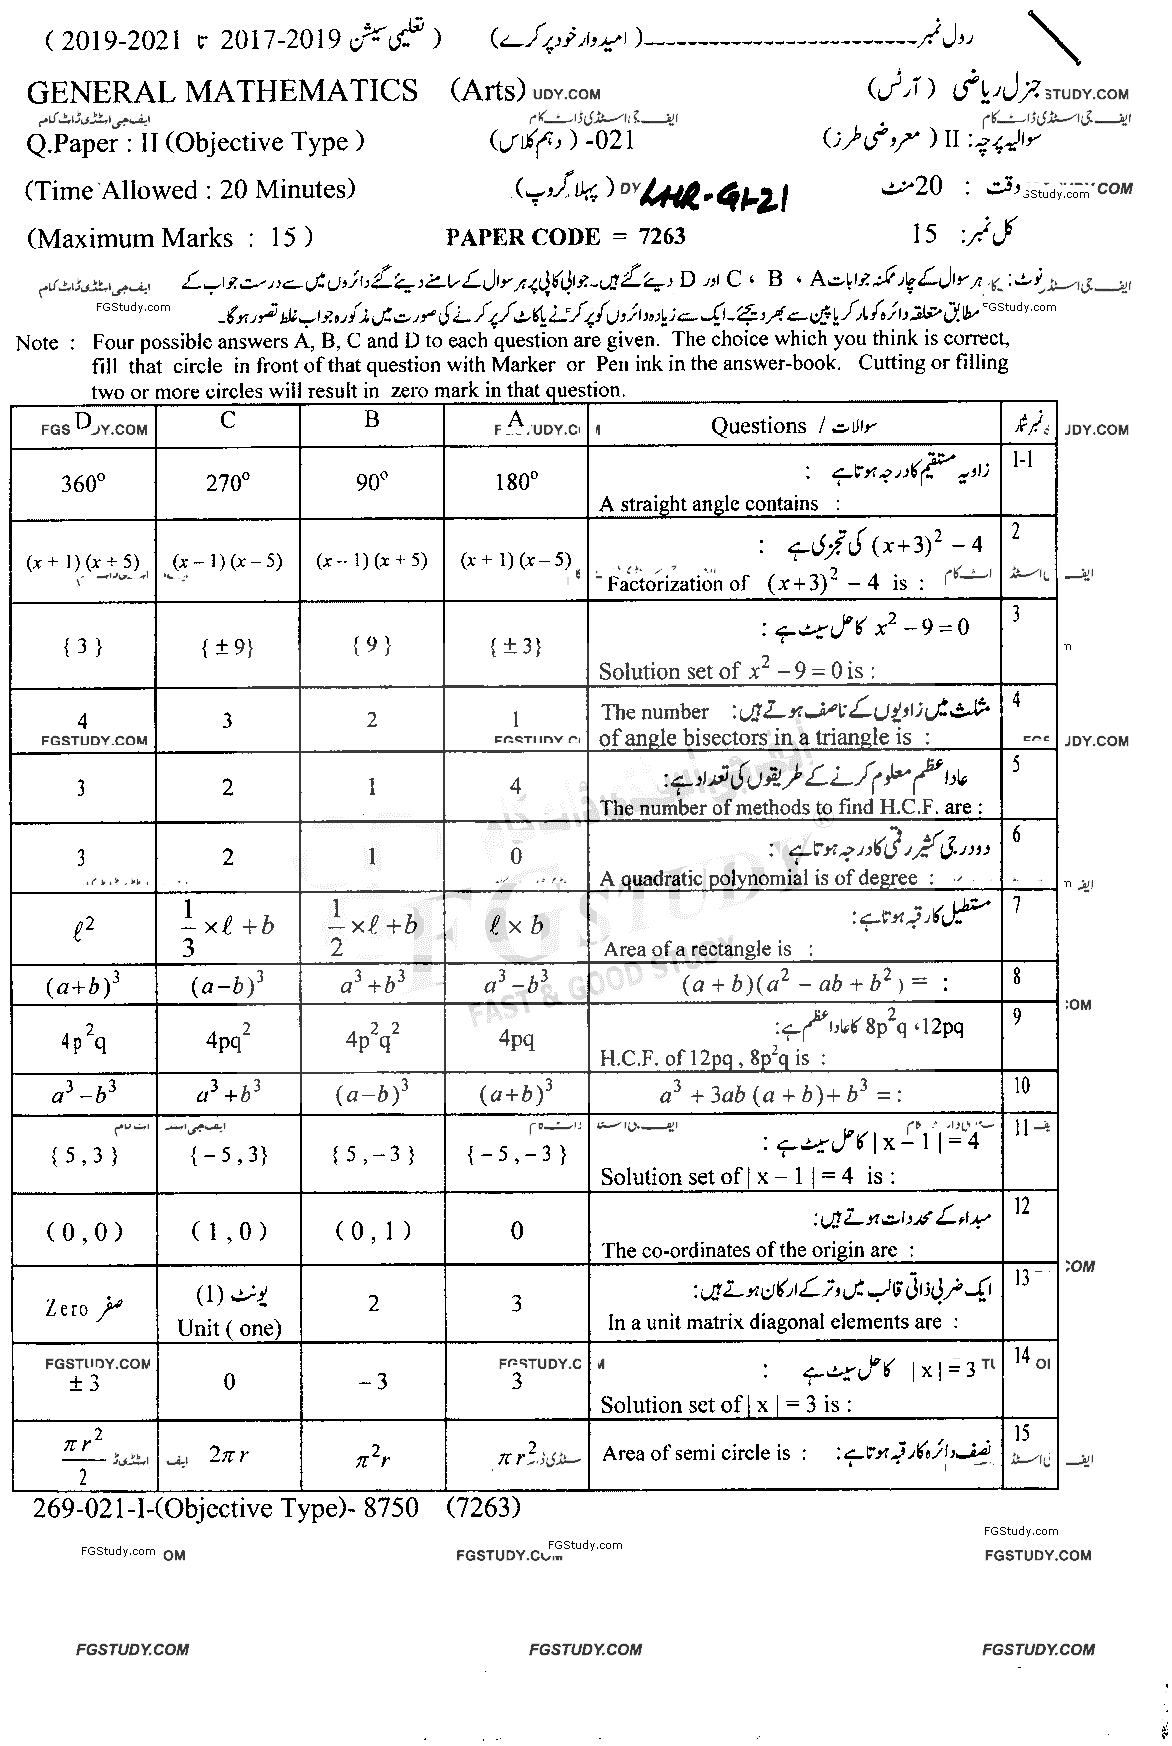 رول نمبر ------------------------ (امیدوار خود پر کرے) (تعلیمی سیشن 2017-2019 تا 2019-2021)
GENERAL MATHEMATICS (Arts) UDY.COM جنرل ریاضی (آرٹس) STUDY.COM
ایف جی اسٹڈی ڈاٹ کام
Q.Paper : II (Objective Type) 021- (دہم کلاس) سوالیہ پرچہ: II (معروضی طرز)
(Time Allowed : 20 Minutes) (پہلا گروپ) DY LHR-G1-21 وقت : 20 منٹ COM
(Maximum Marks : 15) PAPER CODE = 7263 کل نمبر: 15
نوٹ: ہر سوال کے چار ممکنہ جوابات A ، B ، C اور D دیئے گئے ہیں۔ جوابی کاپی پر ہر سوال کے سامنے دیئے گئے دائروں میں سے درست جواب کے
FGStudy.com مطابق متعلقہ دائرہ کو مارکر یا پین سے بھر دیجئے۔ ایک سے زیادہ دائروں کو پر کرنے یا کاٹ کر پر کرنے کی صورت میں مذکورہ جواب غلط تصور ہوگا۔ FGStudy.com
Note : Four possible answers A, B, C and D to each question are given. The choice which you think is correct,
fill that circle in front of that question with Marker or Pen ink in the answer-book. Cutting or filling
two or more circles will result in zero mark in that question.
D C B A Questions / سوالات نمبر شمار
زاویہ مستقیم کا درجہ ہوتا ہے : 1-1
360° 270° 90° 180° A straight angle contains :
(x+3)² − 4 کی تجزی ہے : 2
(x + 1)(x + 5) (x − 1)(x − 5) (x − 1)(x + 5) (x + 1)(x − 5) Factorization of (x+3)² − 4 is :
x² − 9 = 0 کا حل سیٹ ہے : 3
{ 3 } { ± 9} { 9 } { ± 3} Solution set of x² − 9 = 0 is :
The number مثلث میں زاویوں کے ناصف ہوتے ہیں: 4
4 3 2 1 of angle bisectors in a triangle is :
FGSTUDY.COM
عاد اعظم معلوم کرنے کے طریقوں کی تعداد ہے: 5
3 2 1 4 The number of methods to find H.C.F. are :
دو درجی کثیر رقمی کا درجہ ہوتا ہے : 6
3 2 1 0 A quadratic polynomial is of degree :
مستطیل کا رقبہ ہوتا ہے: 7
ℓ² 1/3 × ℓ + b 1/2 × ℓ + b ℓ × b Area of a rectangle is :
(a+b)³ (a−b)³ a³+b³ a³−b³ (a + b)(a² − ab + b²) = : 8
8p²q ، 12pq کا عاد اعظم ہے: 9
4p²q 4pq² 4p²q² 4pq H.C.F. of 12pq , 8p²q is :
a³−b³ a³+b³ (a−b)³ (a+b)³ a³ + 3ab (a + b) + b³ = : 10
|x − 1| = 4 کا حل سیٹ ہے : 11
{ 5 , 3 } { − 5 , 3} { 5 , − 3 } { − 5 , − 3 } Solution set of | x − 1 | = 4 is :
مبداء کے محددات ہوتے ہیں: 12
( 0 , 0 ) ( 1 , 0 ) ( 0 , 1 ) 0 The co-ordinates of the origin are :
ایک ضربی ذاتی قالب میں وتر کے ارکان ہوتے ہیں: 13
Zero صفر یونٹ (1) 2 3
Unit ( one) In a unit matrix diagonal elements are :
FGSTUDY.COM |x| = 3 کا حل سیٹ ہے : 14
± 3 0 − 3 3 Solution set of | x | = 3 is :
πr²/2 2πr π²r πr² Area of semi circle is : نصف دائرہ کا رقبہ ہوتا ہے: 15
269-021-I-(Objective Type)- 8750 (7263)
FGStudy.com FGStudy.com FGStudy.com
FGSTUDY.COM FGSTUDY.COM
FGSTUDY.COM FGSTUDY.COM FGSTUDY.COM
FGSTUDY
FAST & GOOD STUDY